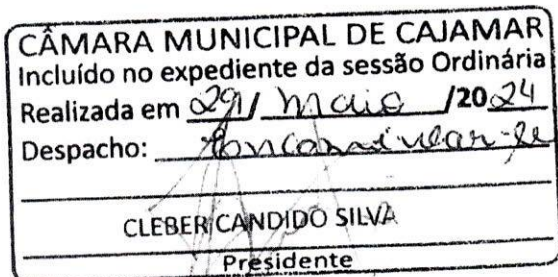 CÂMARA MUNICIPAL DE CAJAMAR
Incluído no expediente da sessão Ordinária
Realizada em 29/ Maio /2024
Despacho: Encaminhar-se
CLEBER CANDIDO SILVA
Presidente